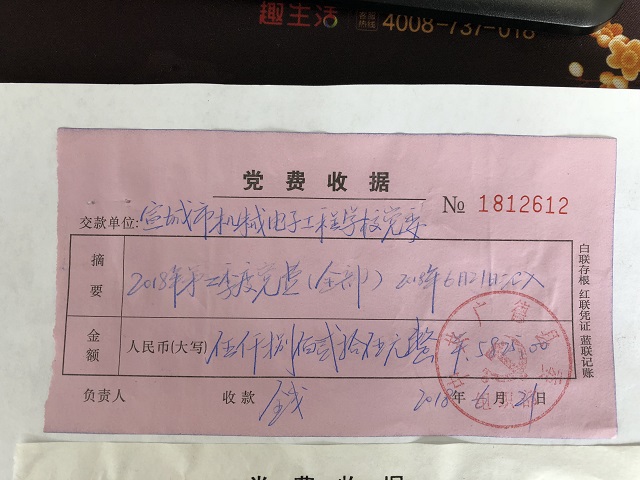 趣生活 客服热线 4008-737-018
党费收据
№ 1812612
交款单位: 宣城市机械电子工程学校党委
摘要 2018年第二季度党费(全部) 2018年6月21日
金额 人民币(大写) 伍仟捌佰贰拾伍元整 ¥: 5825.00
白联存根 红联凭证 蓝联记账
负责人 收款 2018年6月21日
党费收据